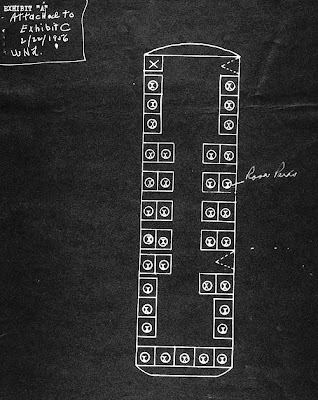 EXHIBIT "A"
Attached to
Exhibit C
2/22/1956
WNL
Rosa Parks